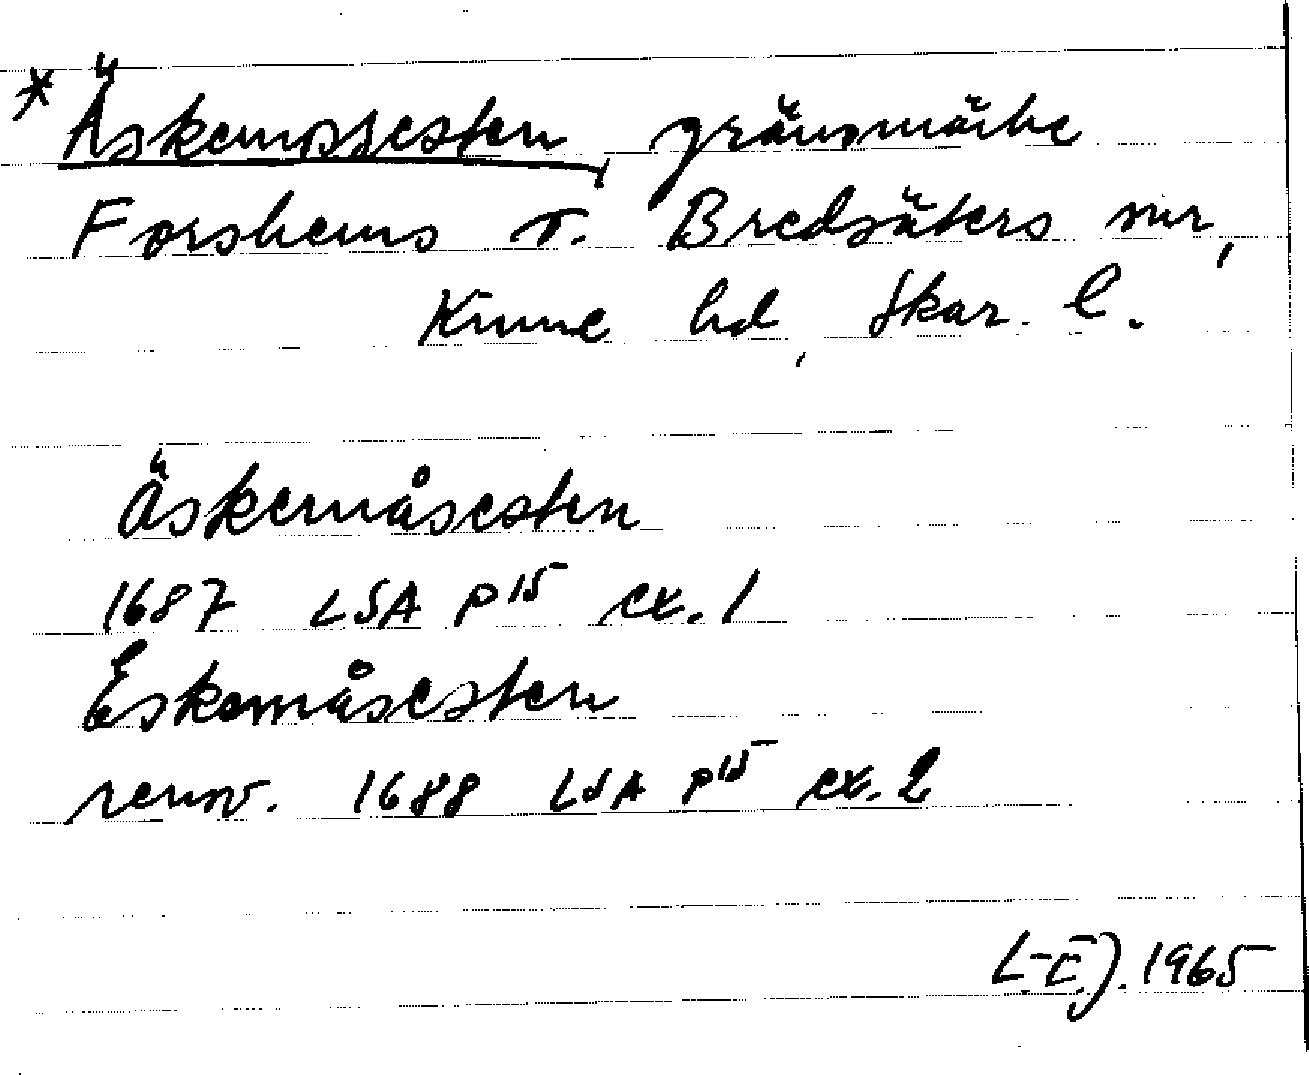 * Äskemossesten, gränsmärke
Forshems o. Bredsäters snr,
Kinne hd, Skar. l.
Äskemåsesten
1687 LSA P15 ex. 1
Eskemåsesten
renov. 1688 LSA P15 ex. 2
L-E J. 1965